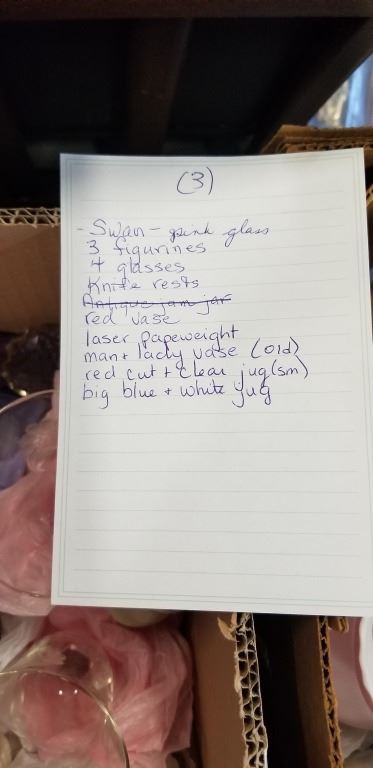 (3)
- Swan - pink glass
3 figurines
4 glasses
Knife rests
Antique jam jar
red vase
laser papeweight
man + lady vase (old)
red cut + clear jug (sm)
big blue + white jug